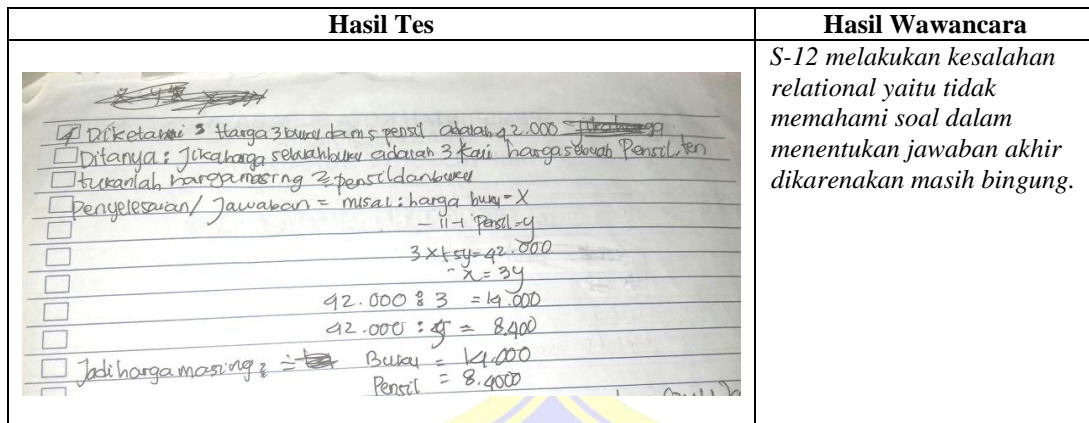 Hasil Tes
Hasil Wawancara
4 Diketahui : Harga 3 buku dan 5 pensil adalah 42.000
Ditanya : Jika harga sebuah buku adalah 3 kali harga sebuah Pensil, ten
tukanlah harga masing 2 pensil dan buku
Penyelesaian / Jawaban = misal : harga buku = X
- 11 - Pensil = y
3x + 5y = 42.000
- x = 3y
42.000 : 3 = 14.000
42.000 : 5 = 8.400
Jadi harga masing 2 = Buku = 14.000
Pensil = 8.4000
S-12 melakukan kesalahan
relational yaitu tidak
memahami soal dalam
menentukan jawaban akhir
dikarenakan masih bingung.